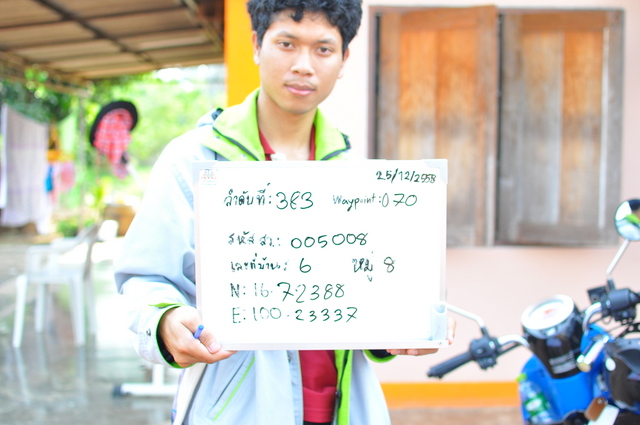 25/12/2558
ลำดับที่: 363 Waypoint: 070
รหัส สว.: 005008
เลขที่บ้าน: 6 หมู่ 8
N: 16.72388
E: 100.23337